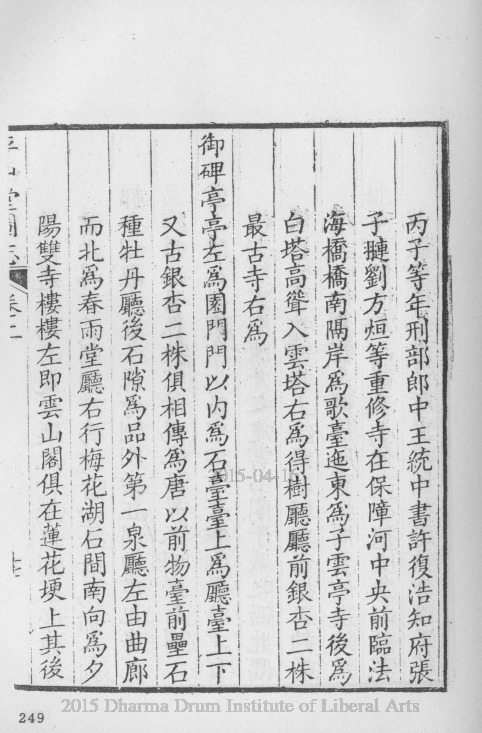 丙子等年刑部郎中王統中書許復浩知府張
子㻞劉方烜等重修寺在保障河中央前臨法
海橋橋南隔岸爲歌臺迤東爲子雲亭寺後爲
白塔高聳入雲塔右爲得樹廳廳前銀杏二株
最古寺右爲
御碑亭亭左爲園門門以内爲石臺臺上爲廳臺上下
又古銀杏二株俱相傳爲唐以前物臺前壘石
種牡丹廳後石隙爲品外第一泉廳左由曲廊
而北爲春雨堂廳右行梅花湖石間南向爲夕
陽雙寺樓樓左即雲山閣俱在蓮花埂上其後
平山堂圖志
卷二
2015-04-1
249
2015 Dharma Drum Institute of Liberal Arts